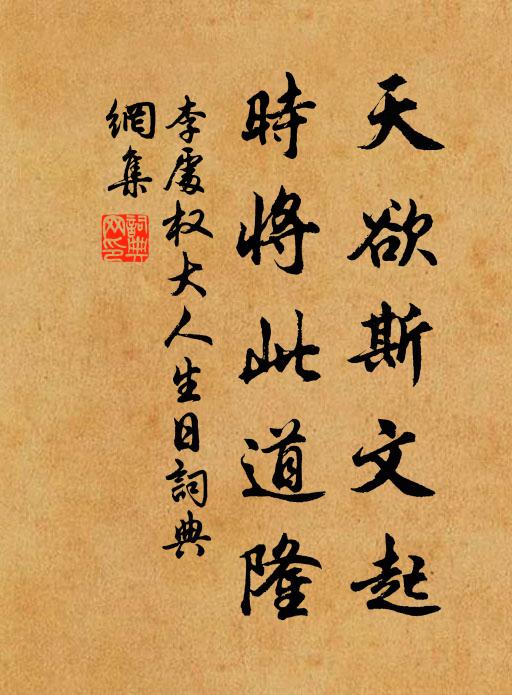 天欲斯文起
時將此道隆
李處权大人生日詞典
網集
詞典
网印